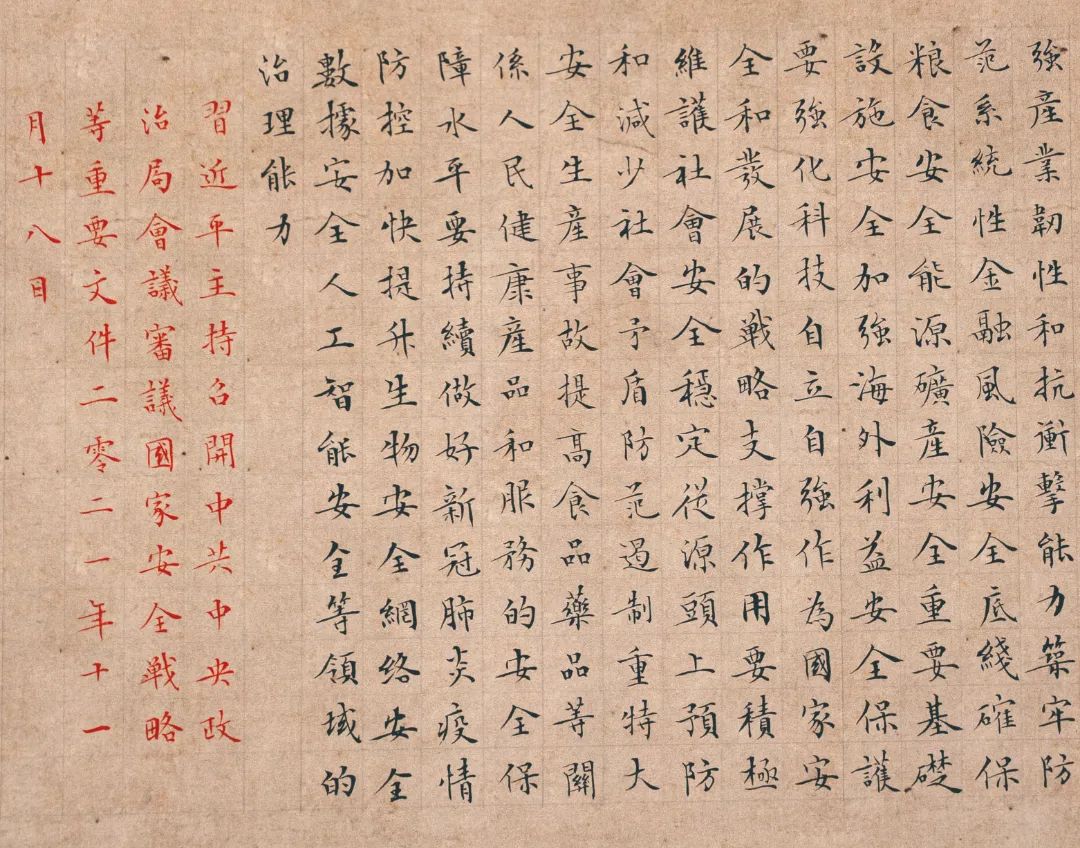 強產業韌性和抗衝擊能力築牢防
范系統性金融風險安全底綫確保
粮食安全能源礦產安全重要基礎
設施安全加強海外利益安全保護
要強化科技自立自強作為國家安
全和發展的戰略支撐作用要積極
維護社會安全穩定從源頭上預防
和減少社會予盾防范遏制重特大
安全生產事故提高食品藥品等關
係人民健康產品和服務的安全保
障水平要持續做好新冠肺炎疫情
防控加快提升生物安全網絡安全
數據安全人工智能安全等領域的
治理能力
習近平主持召開中共中央政
治局會議審議國家安全戰略
等重要文件二零二一年十一
月十八日